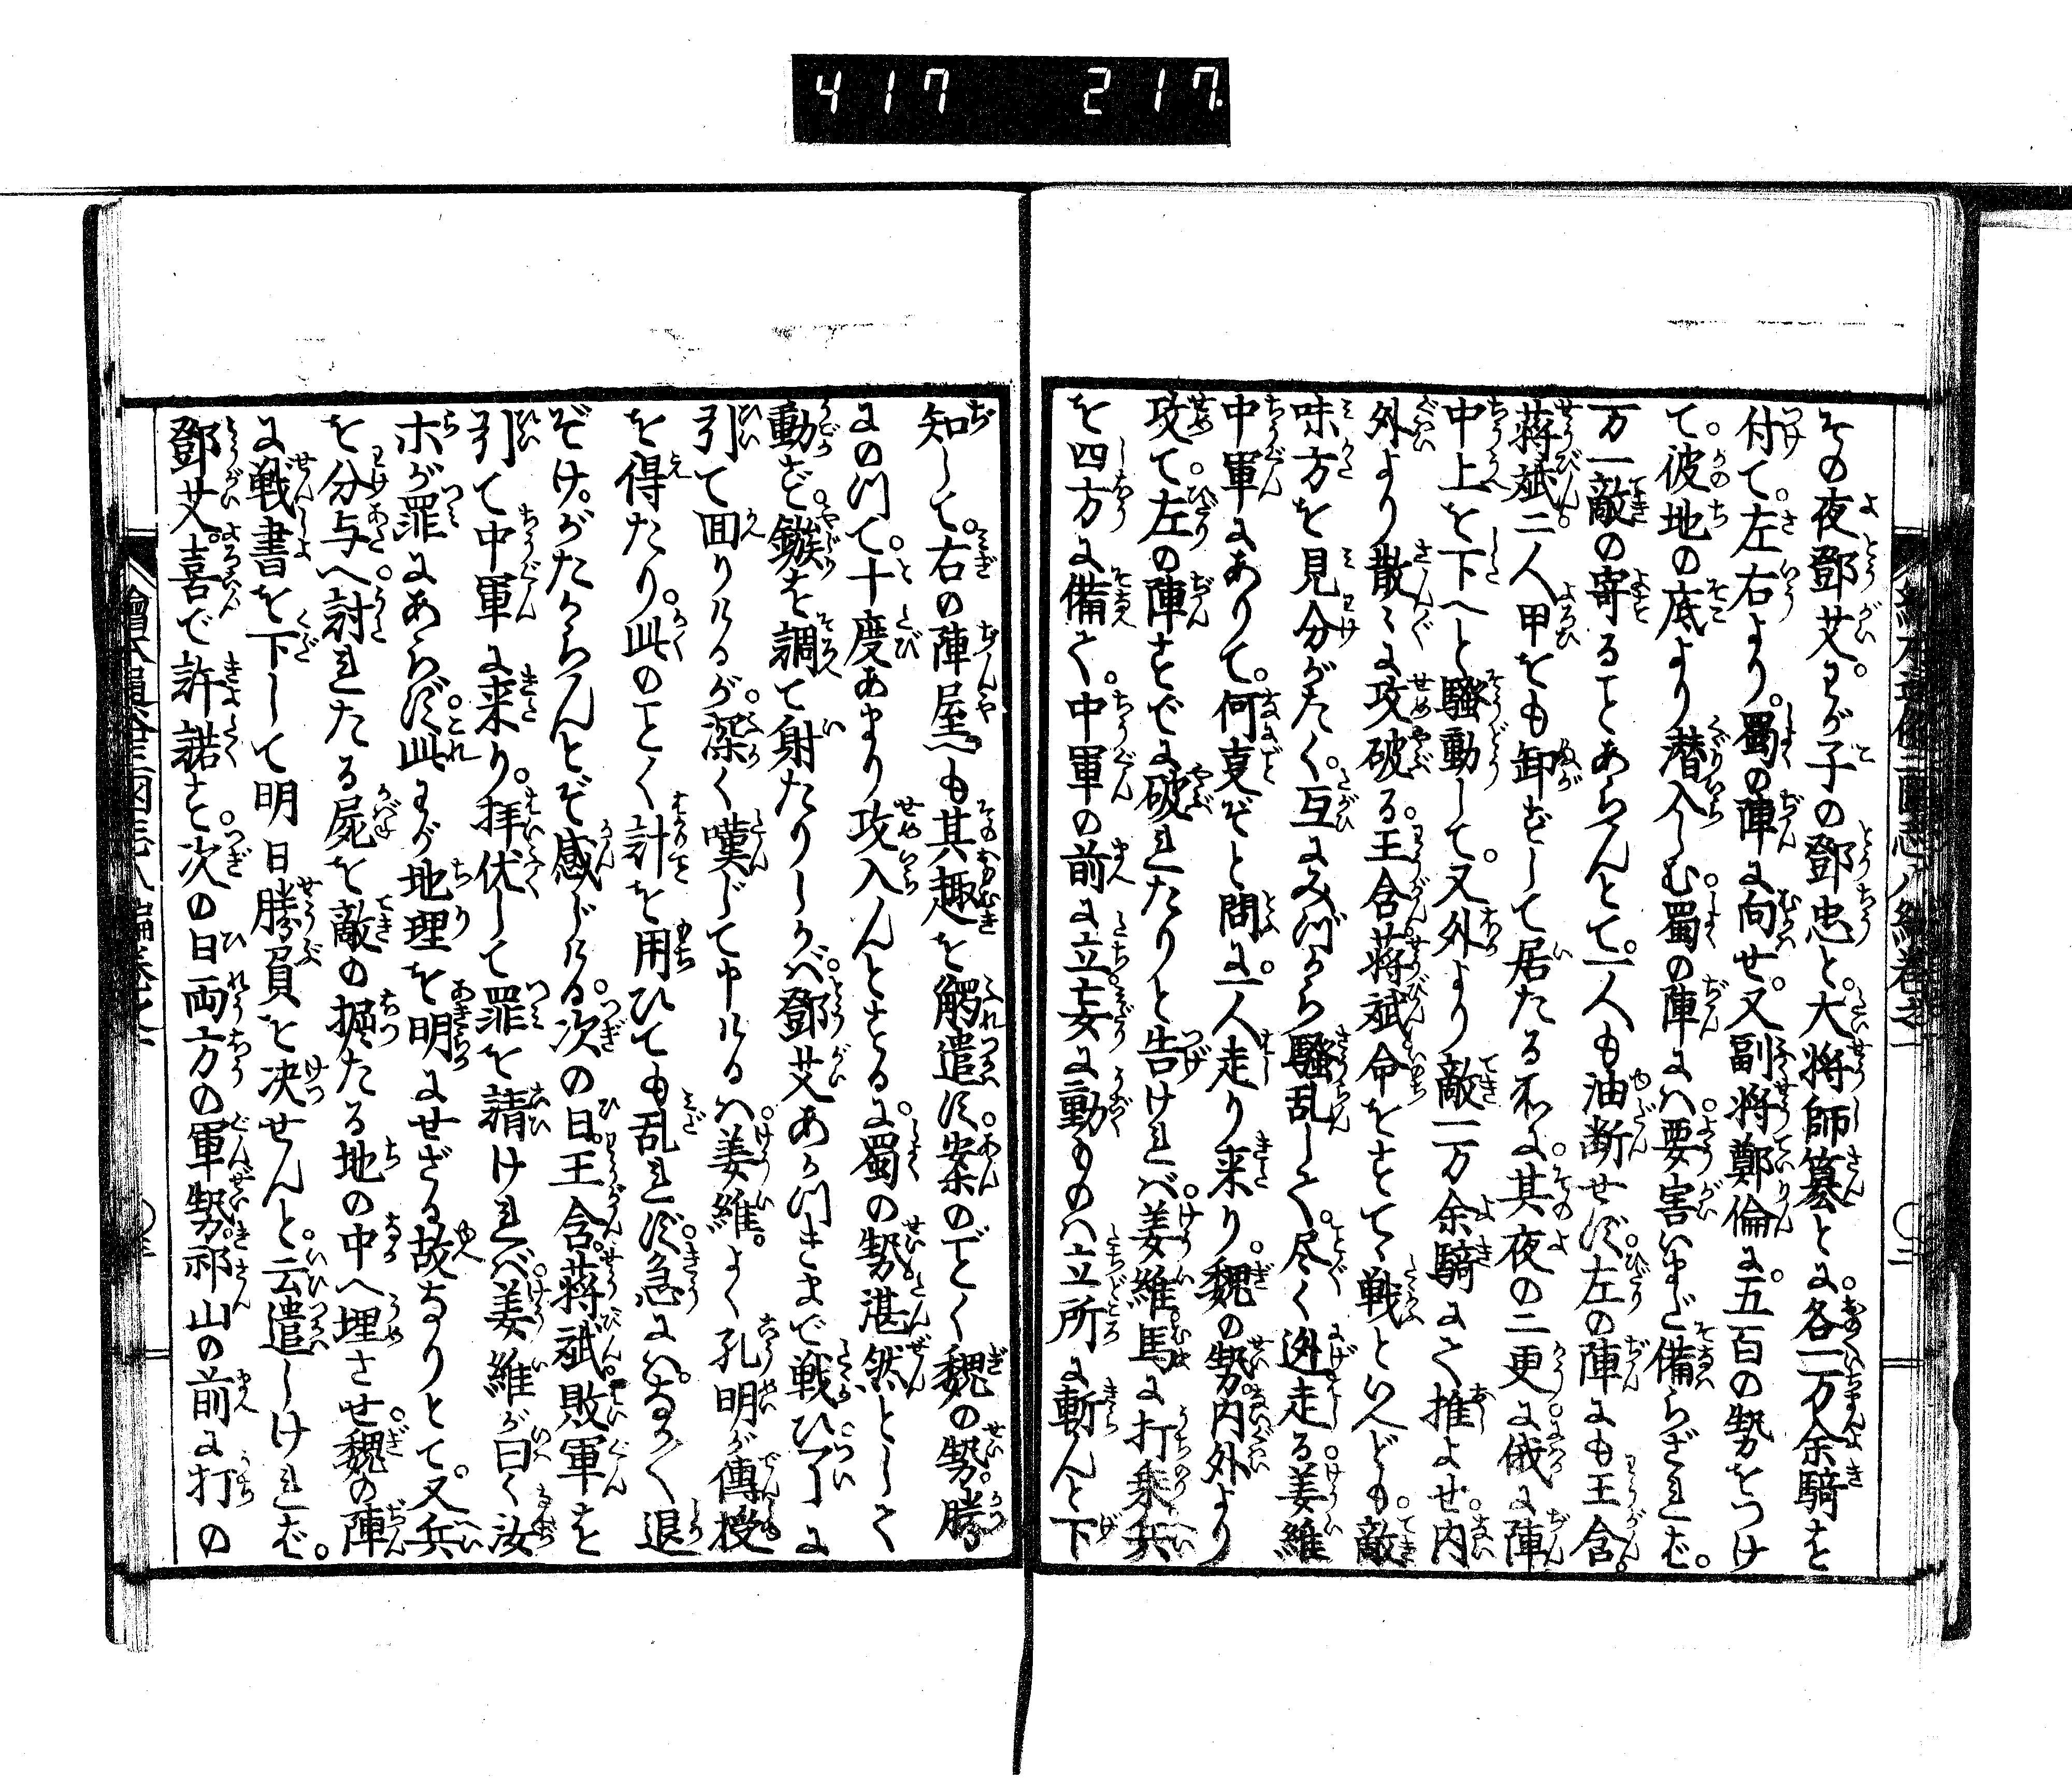 417 217
その夜鄧艾。わが子の鄧忠と。大将師纂とに。各一万余騎を
付て。左右より。蜀の陣に向せ。又副将鄭倫に。五百の勢をつけ
て。彼地の底より潜入しむ。蜀の陣にハ。要害いまだ備らざれば。
万一敵の寄ることあらんとて。一人も油断せず。左の陣にも王含。
蒋斌二人甲をも卸ずして居たる所に。其夜の二更に。俄に陣
中上を下へと騒動して。又外より敵一万余騎にて推よせ。内
外より散〻に攻破る。王含。蒋斌。命をすてゝ戦といへども。敵
味方を見分がたく。互にみづから騒乱して。尽く迯走る。姜維
中軍にありて。何夏ぞと問に。一人走り来り。魏の勢。内外より
攻て。左の陣すでに破れたりと告けれバ。姜維。馬に打乗。兵
を四方に備て。中軍の前に立。妄に動ものハ立所に斬んと下
知して。右の陣屋へも其趣を觸遣ハす。案のごとく魏の勢。勝
にのつて。十度あまり攻入んとするに。蜀の勢。湛然として
動ず。鏃を調て射たりしかバ。鄧艾あかつきまで戦ひ。了に
引て回りけるが。深く嘆じて申けるハ。姜維。よく孔明が傳授
を得たり。此のごとく計を用ひても乱れず。急にハ。なか〳〵退
ぞけ。がたからんとぞ感じける。次の日。王含。蒋斌。敗軍を
引て中軍に来り。拝伏して罪を請けれバ。姜維が曰く汝
ホが罪にあらず。此わが地理を明にせざる故なりとて。又兵
を分与へ。討れたる屍を敵の掘たる地の中へ埋させ。魏の陣
に戦書を下して明日勝負を决せんと。云遣しけれバ。
鄧艾。喜で許諾す。次の日両方の軍勢。祁山の前に打の